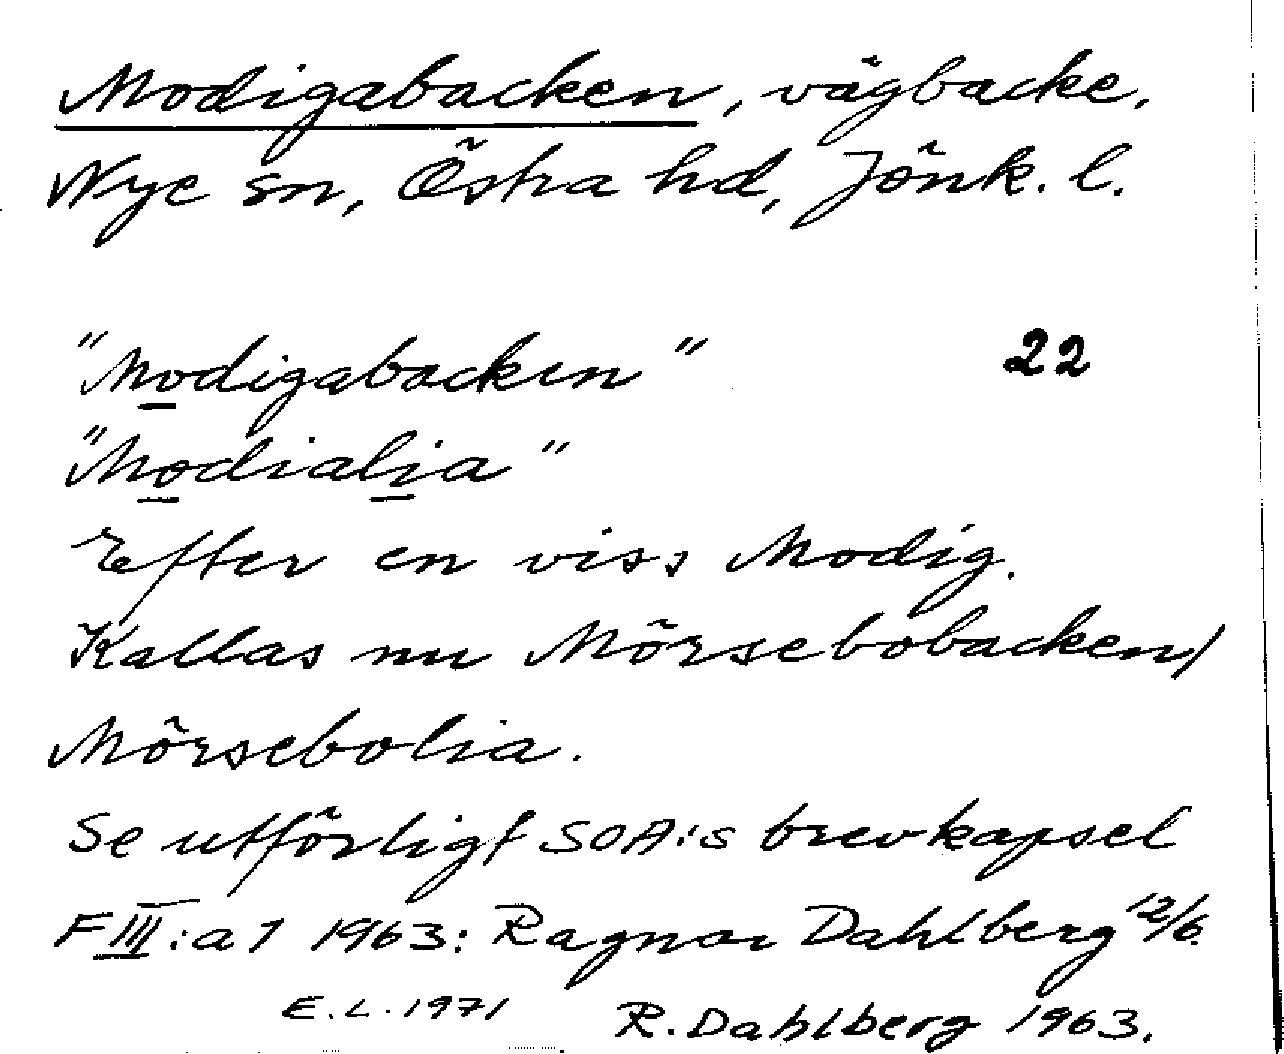 Modigabacken, vägbacke.
Nye sn, Östra hd, Jönk. l.
"Modigabacken" 22
"Modialia"
Efter en viss Modig.
Kallas nu Mörsebobacken/
Mörsebolia.
Se utförligt SOA:s brevkapsel
F III:a 1 1963: Ragnar Dahlberg 12/6.
E.L. 1971 R. Dahlberg 1963.